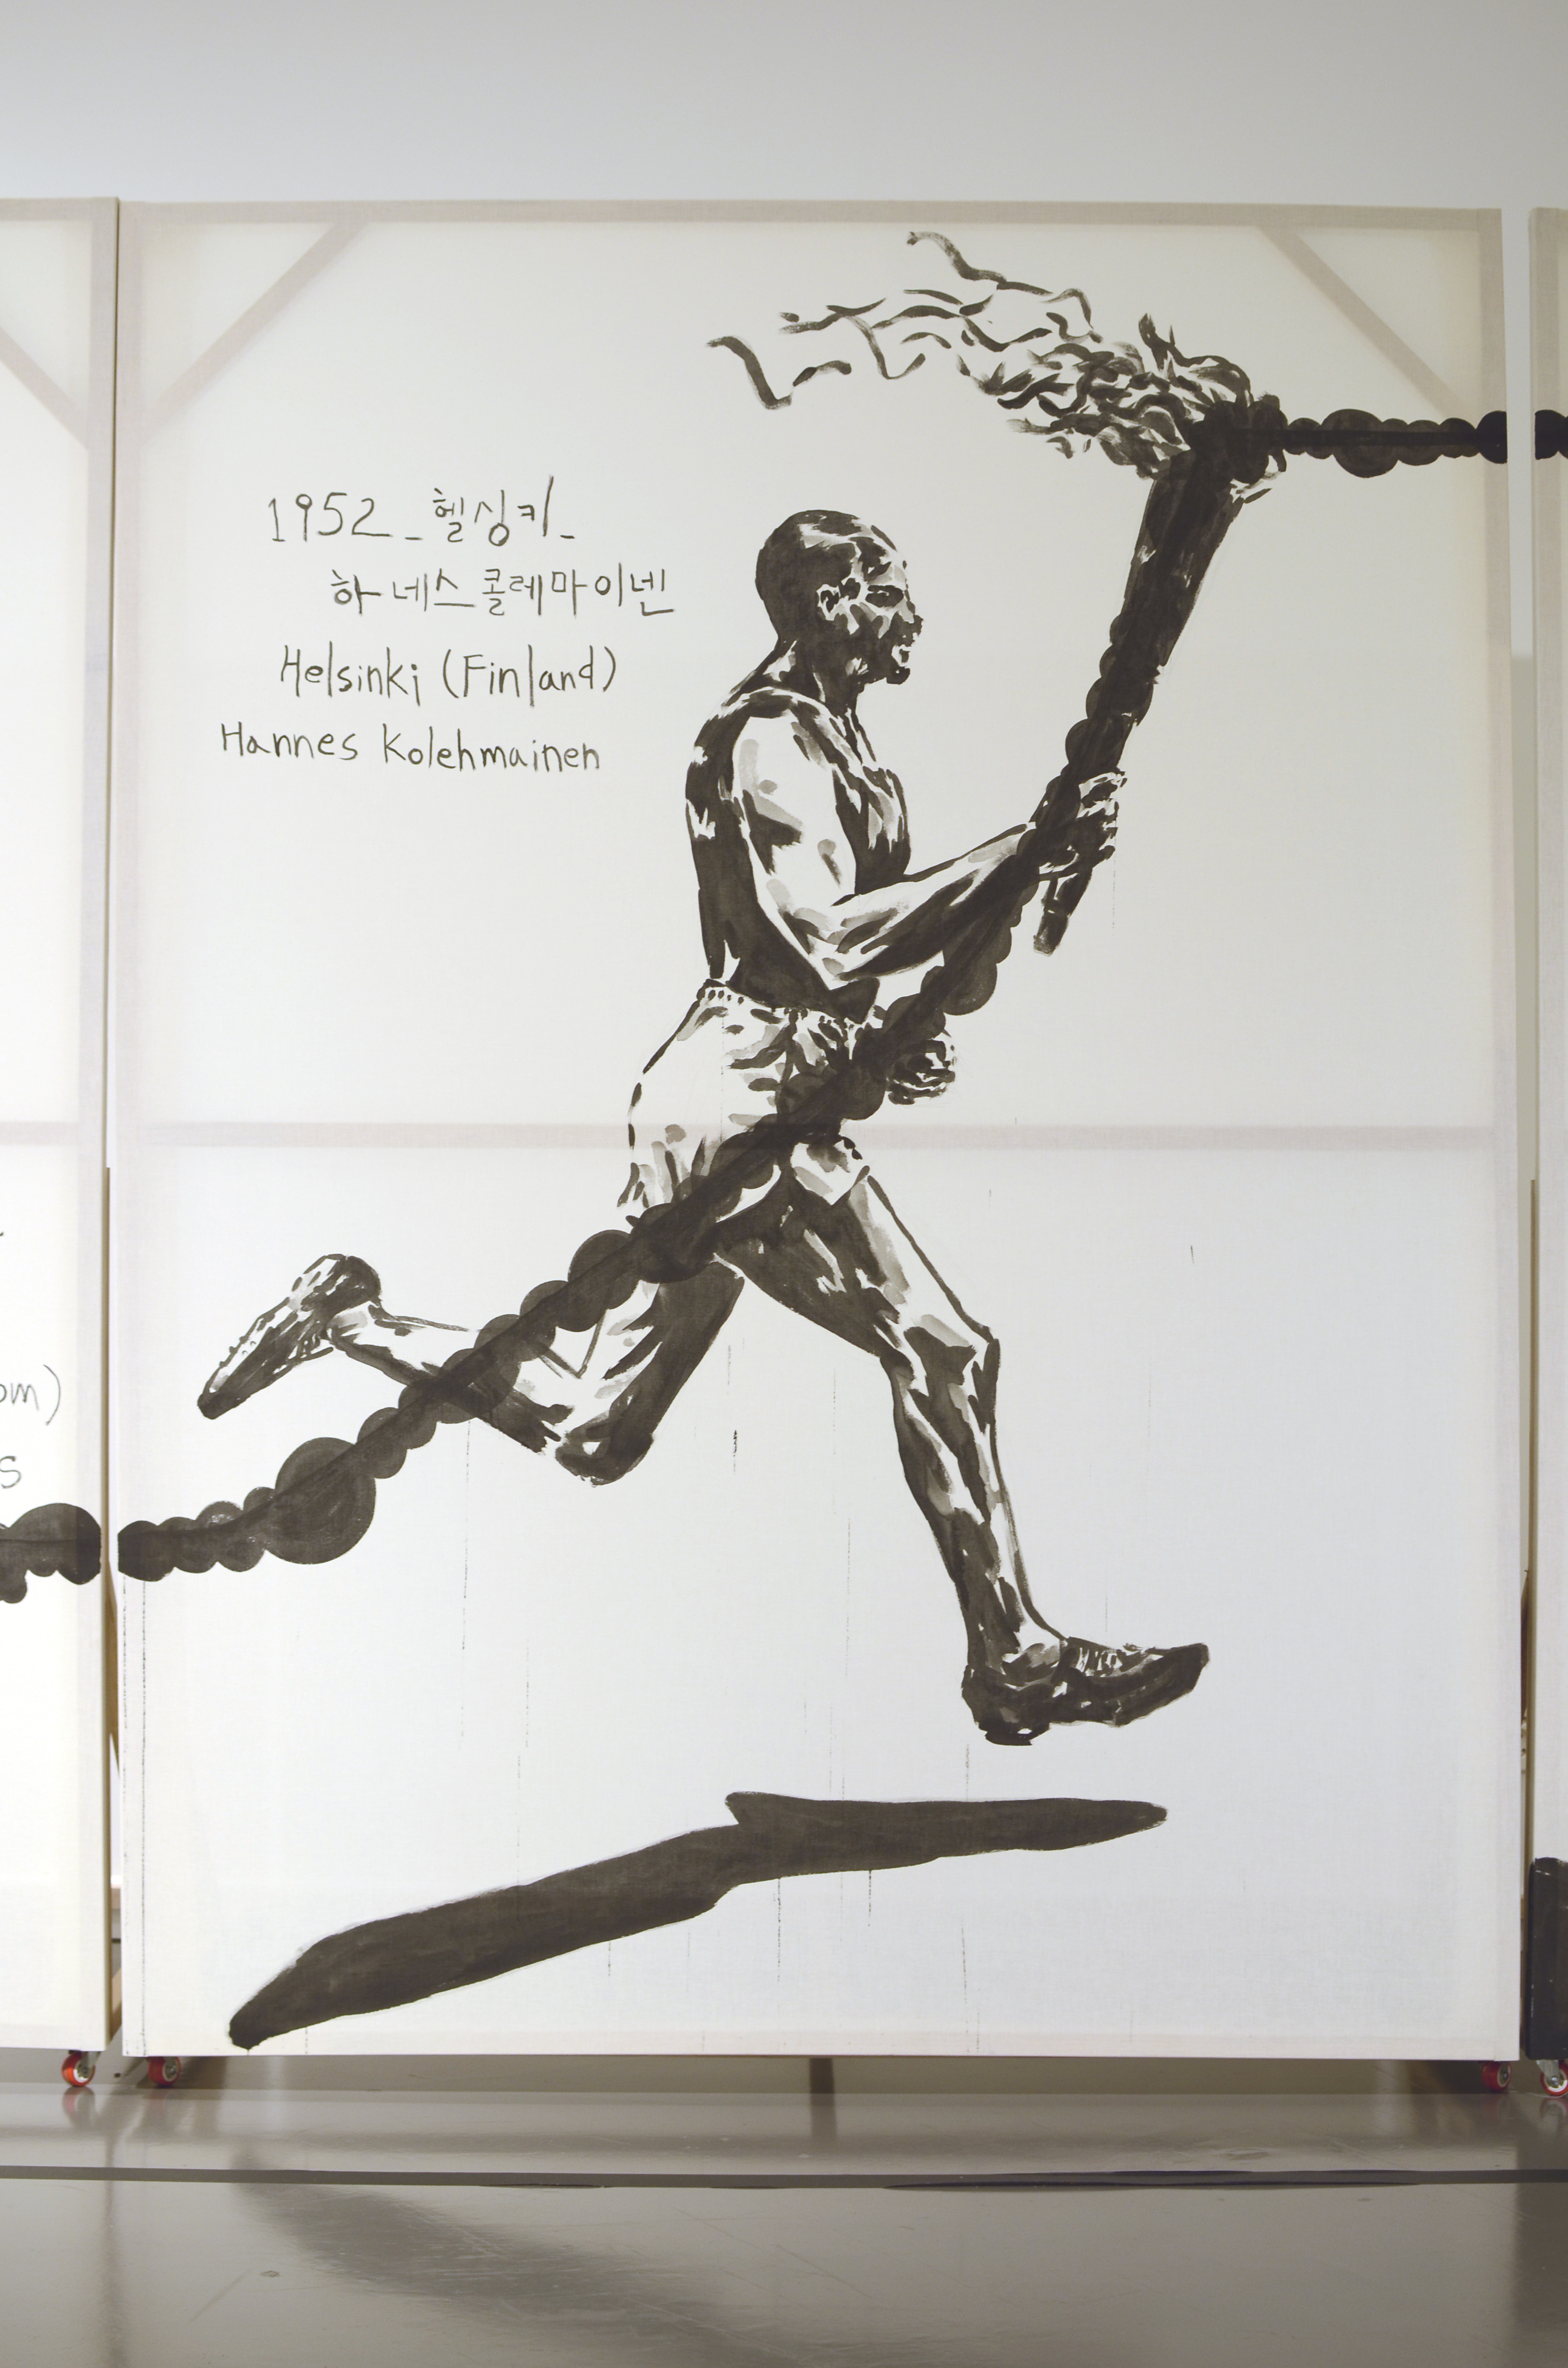 1952_헬싱키_
하네스콜레마이넨
Helsinki (Finland)
Hannes Kolehmainen
om)
s